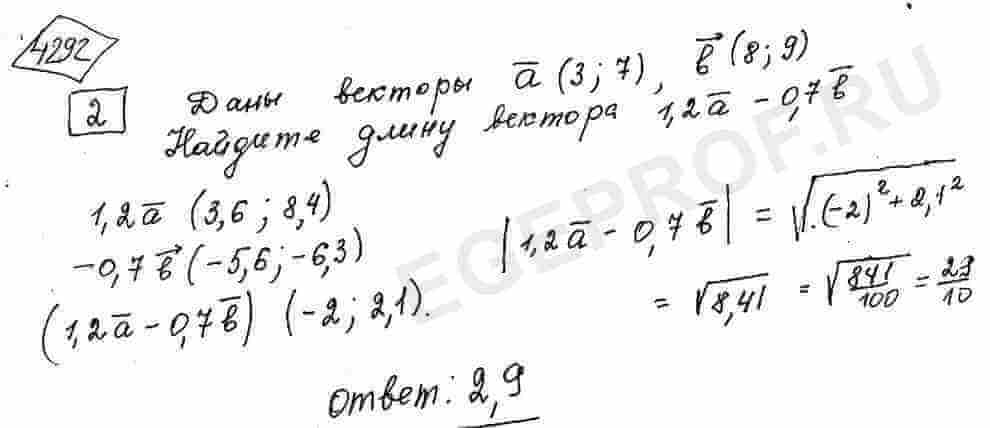 4292
2 Даны векторы a̅ (3; 7), b⃗ (8; 9)
Найдите длину вектора 1,2a̅ - 0,7b̅
1,2a̅ (3,6; 8,4)
-0,7b⃗ (-5,6; -6,3)
(1,2a̅ - 0,7b̅) (-2; 2,1).
|1,2a̅ - 0,7b̅| = √(-2)² + 2,1²
= √8,41 = √841/100 = 29/10
Ответ: 2,9
EGEPROF.RU